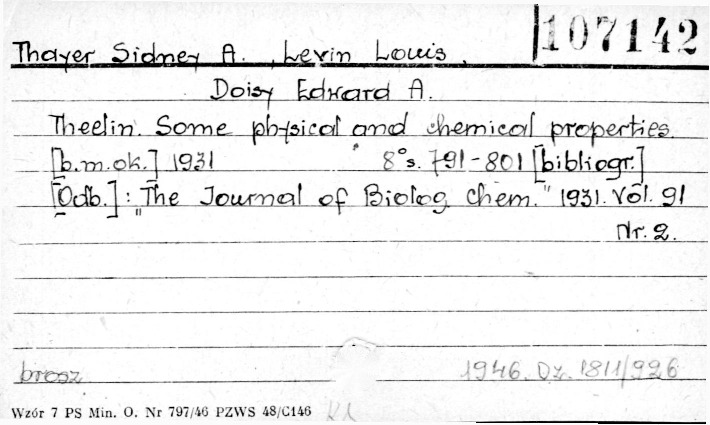 107142
Thayer Sidney A., Levin Louis,
Doisy Edward A.
Theelin. Some physical and chemical properties.
[b.m.ok.] 1931 8° s. 791-801 [bibliogr.]
[Odb.]: "The Journal of Biolog Chem." 1931. Vol. 91
Nr. 2.
brosz
1946. Dz. 1811/926
Wzór 7 PS Min. O. Nr 797/46 PZWS 48/C146